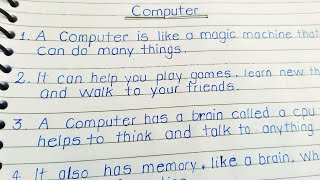 Computer
1. A Computer is like a magic machine that
can do many things.
2. It can help you play games, learn new th
and walk to your friends.
3. A Computer has a brain called a cpu
helps to think and talk to anything.
4. It also has memory, like a brain, wh